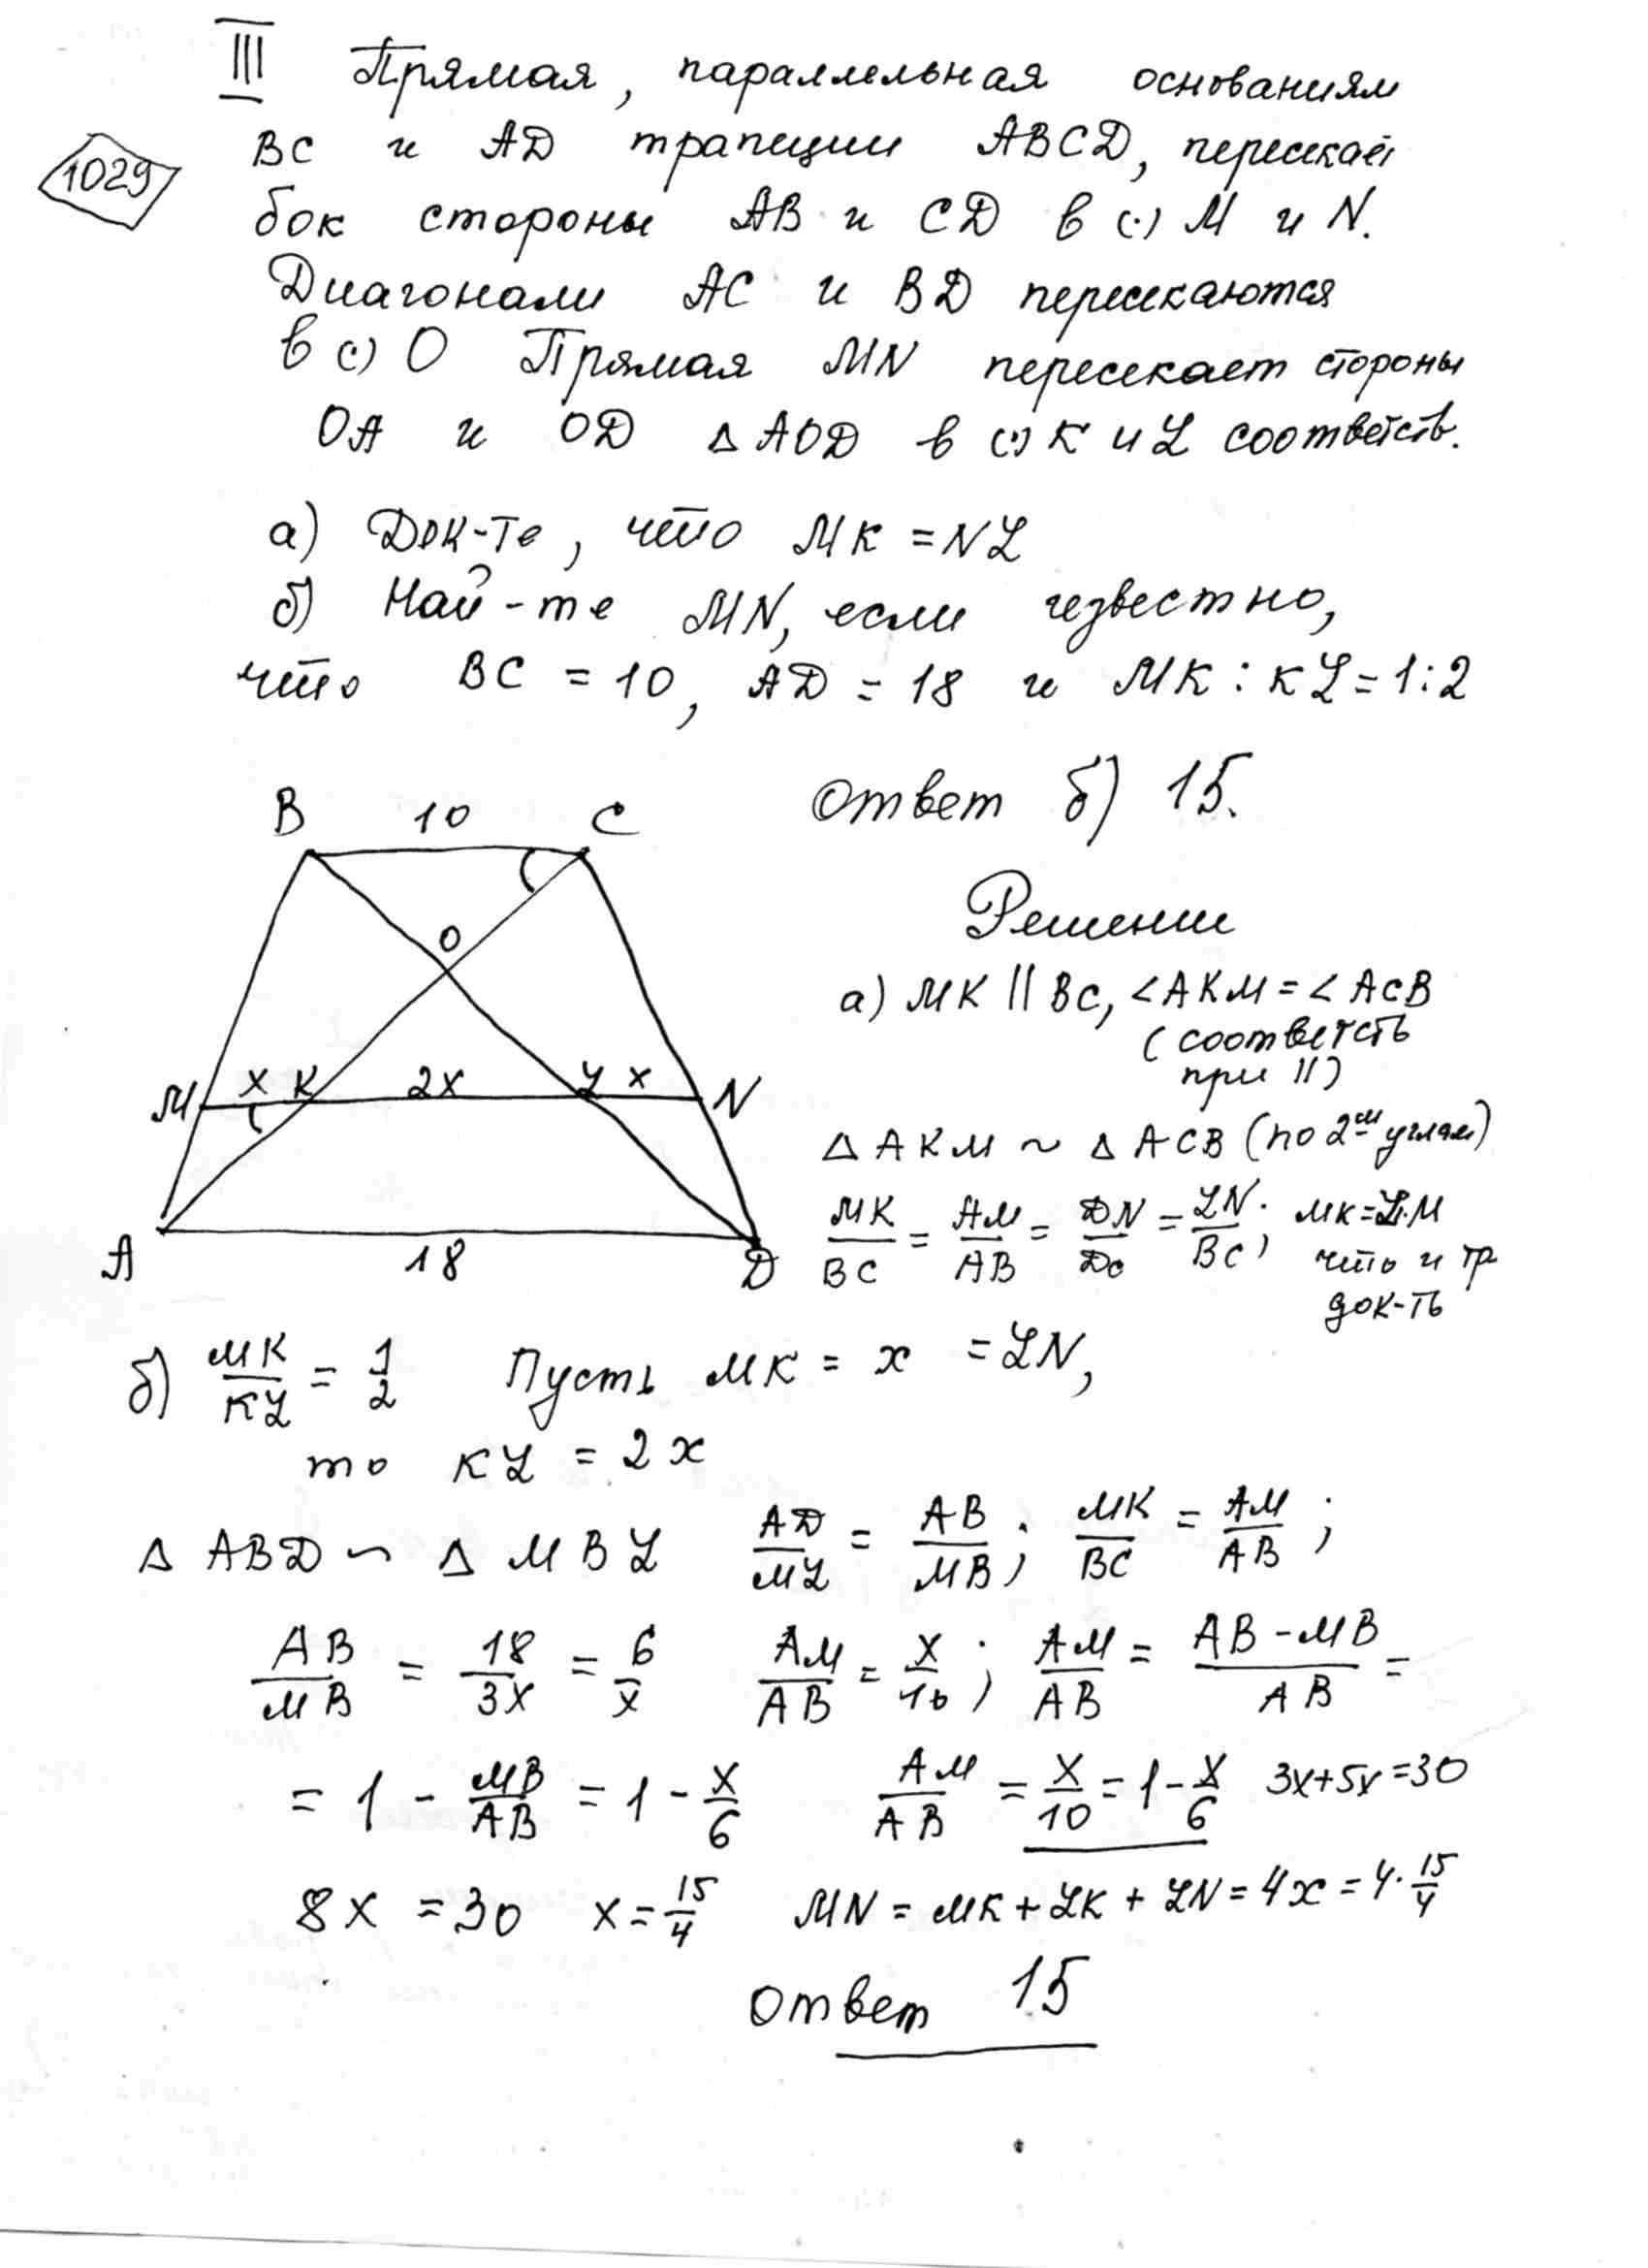 III Прямая, параллельная основаниям
1029 BC и AD трапеции ABCD, пересекает
бок стороны AB и CD в (·) M и N.
Диагонали AC и BD пересекаются
в (·) O Прямая MN пересекает стороны
OA и OD △AOD в (·) K и L соответств.
а) Док-те, что MK = NL
б) Най-те MN, если известно,
что BC = 10, AD = 18 и MK : KL = 1:2
Ответ б) 15.
B 10 C
O
M x K 2x L x N
A 18 D
Решение
а) MK || BC, ∠AKM = ∠ACB
(соответсть
при ||)
△AKM ~ △ACB (по 2ум углам)
MK/BC = AM/AB = DN/DC = LN/BC; MK = LM
что и тр
док-ть
б) MK/KL = 1/2 Пусть MK = x = LN,
то KL = 2x
△ABD ~ △MBL AD/ML = AB/MB; MK/BC = AM/AB;
AB/MB = 18/3x = 6/x AM/AB = x/10; AM/AB = AB-MB/AB =
= 1 - MB/AB = 1 - x/6 AM/AB = x/10 = 1 - x/6 3x+5x=30
8x = 30 x = 15/4 MN = MK + LK + LN = 4x = 4·15/4
Ответ 15